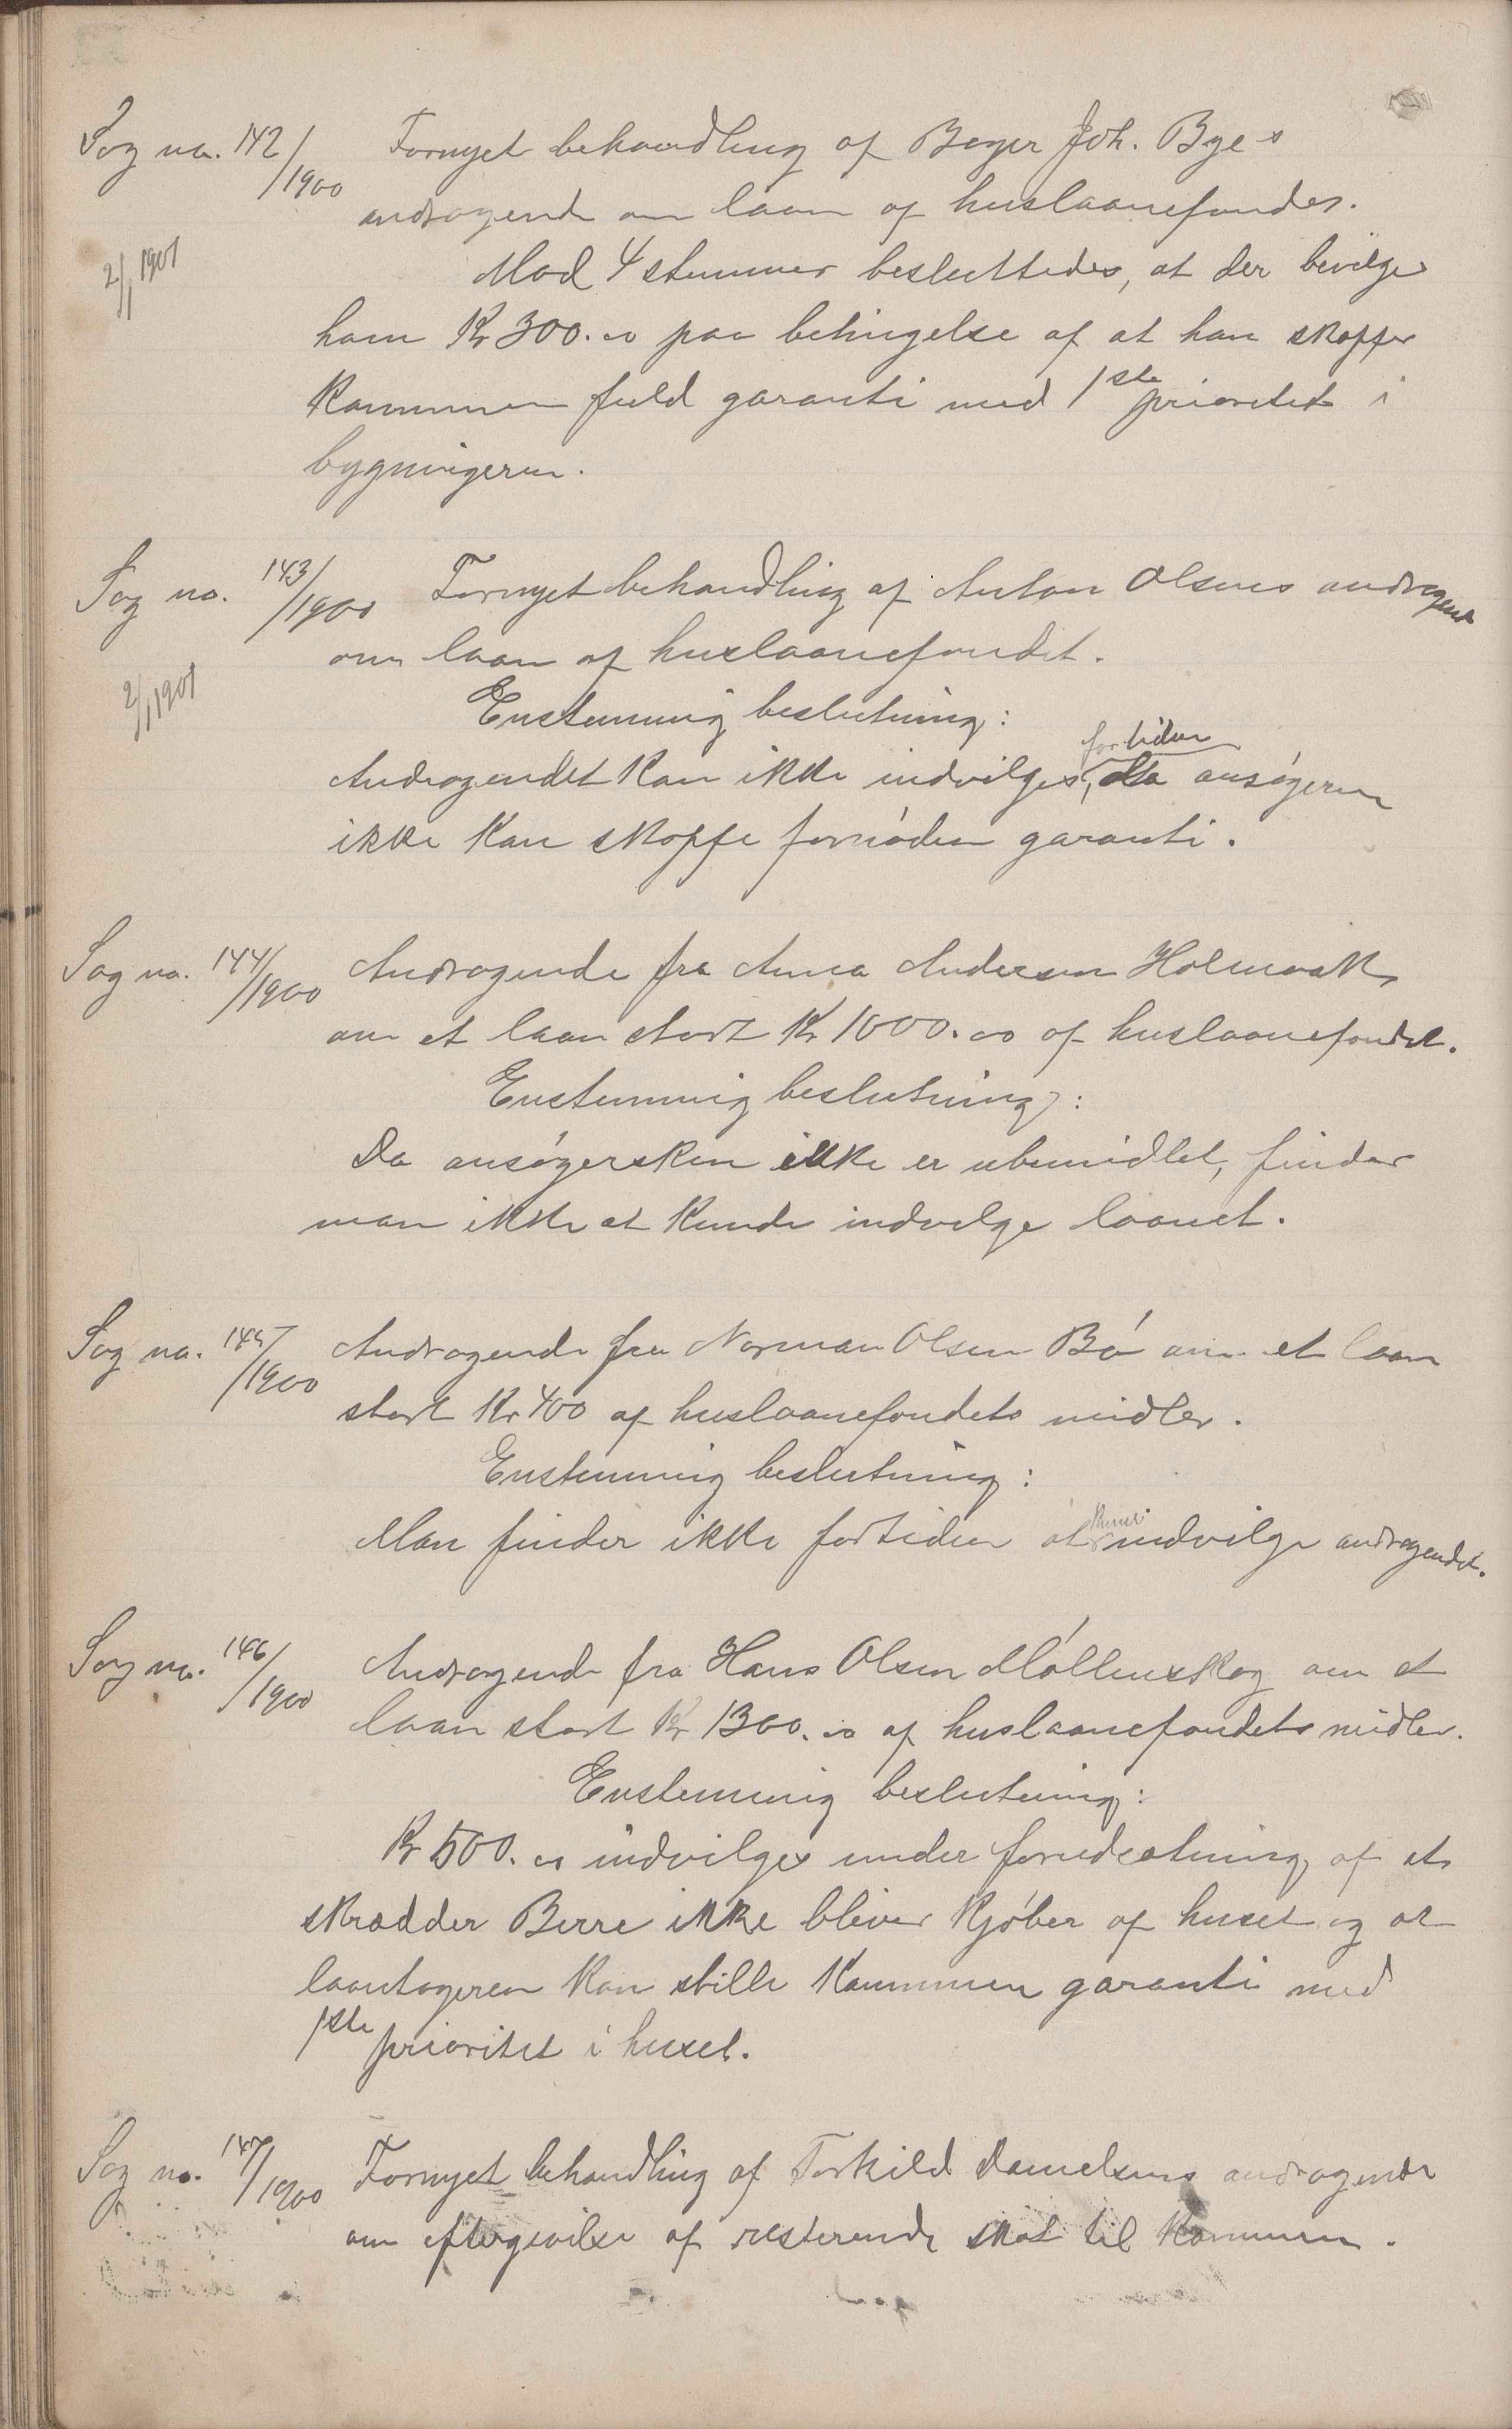 Sag no. 142/1900 Fornyet behandling af Bager Joh. Bye's
andragende om laan af huslaanefondet.
2/1 1901
Mod 4 stemmer besluttedes, at der bevilges
ham Kr 300.00 paa betingelse af at han skaffer
Kommunen fuld garanti med 1ste prioritet i
bygningerne.
Sag no. 143/1900 Fornyet behandling af Anton Olsens andragende
om laan af huslaanefondet.
2/1 1901
Enstemmig beslutning:
fortiden
Andragendet kan ikke indvilges, da ansøgeren
ikke kan skaffe fornøden garanti.
Sag no. 144/1900 Andragende fra Anna Andersen Holmark
om et laan stort Kr 1000.00 af huslaanefondet.
Enstemmig beslutning:
Da ansøgersken ikke er ubemidlet, finder
man ikke at kunde indvilge laanet.
Sag no. 145/1900 Andragende fra Norman Olsen Bø om et laan
stort Kr 400 af huslaanefondets midler.
Enstemmig beslutning:
kunde
Man finder ikke fortiden at indvilge andragendet.
Sag no. 146/1900 Andragende fra Hans Olsen Møllenskog om et
laan stort Kr 1300.00 af huslaanefondets midler.
Enstemmig beslutning:
Kr 500.00 indvilges under forudsætning af at
skrædder Berre ikke bliver kjøber af huset og at
laantageren kan stille Kommunen garanti med
1ste prioritet i huset.
Sag no. 147/1900 Fornyet behandling af Torkild Danielsens andragende
om eftergivelse af resterende skat til Kommunen.